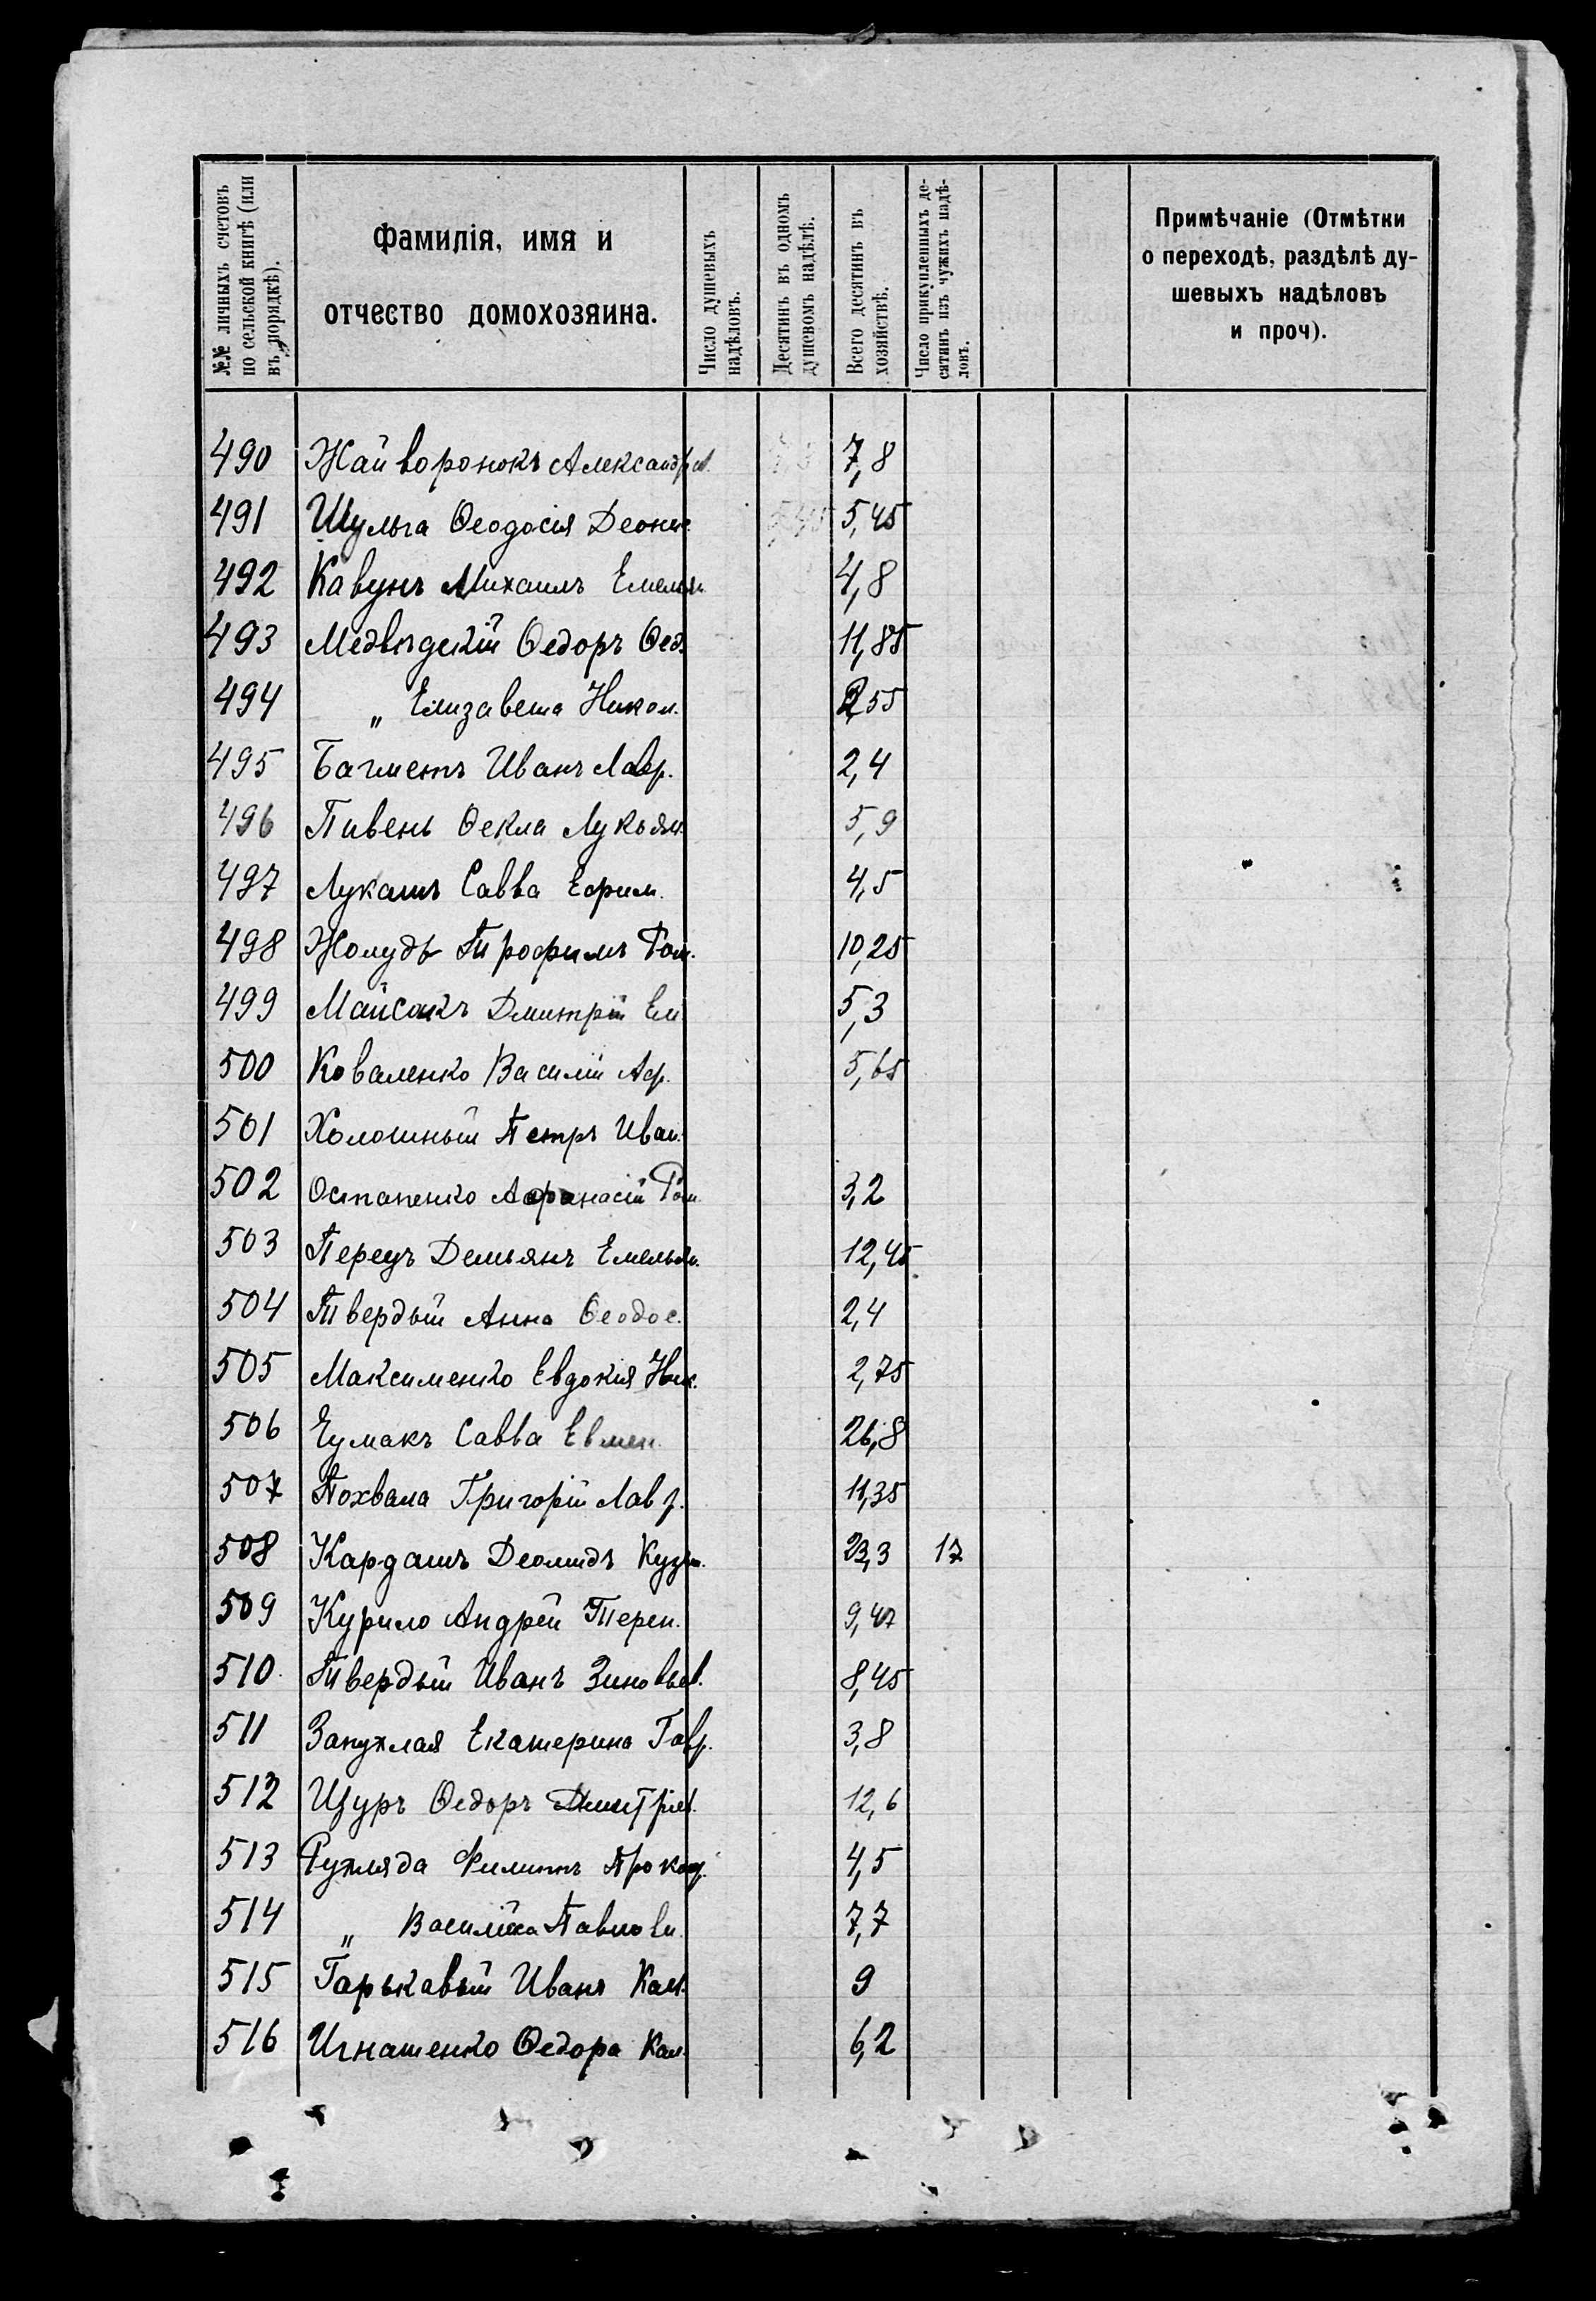 №№ личныхъ счетовъ по сельской книгѣ (или въ порядкѣ).
Фамилія, имя и отчество домохозяина.
Число душевыхъ надѣловъ.
Десятинъ въ одномъ душевомъ надѣлѣ.
Всего десятинъ въ хозяйствѣ.
Число прикупленныхъ десятинъ изъ чужихъ надѣловъ.
Примѣчаніе (Отмѣтки о переходѣ, раздѣлѣ душевыхъ надѣловъ и проч).
490 Жайворонокъ Александръ 7,8
491 Шульга Ѳеодосія Деони. 5,45
492 Кавунъ Михаилъ Емельян. 4,8
493 Медвѣдскій Ѳедоръ Ѳед. 11,85
494 „ Елизавета Никол. 2,55
495 Багметъ Иванъ Лавр. 2,4
496 Пивень Ѳекла Лукьян. 5,9
497 Лукашъ Савва Ефим. 4,5
498 Жолудь Трофимъ Ром. 10,25
499 Майсакъ Дмитрій Ем. 5,3
500 Коваленко Василій Аф. 5,65
501 Холошный Петръ Иван.
502 Остапенко Афанасій Ром. 3,2
503 Перецъ Демьянъ Емельян. 12,45
504 Твердый Анна Ѳеодос. 2,4
505 Максименко Евдокія Ник. 2,75
506 Чумакъ Савва Евмен. 26,8
507 Похвала Григорій Лавр. 11,35
508 Кардашъ Деомидъ Кузьм. 23,3 17
509 Курило Андрей Терен. 9,47
510 Твердый Иванъ Зиновьев. 8,45
511 Запухлая Екатерина Гавр. 3,8
512 Щуръ Ѳедоръ Дмитріев. 12,6
513 Рухляда Филиппъ Прокоф. 4,5
514 „ Василиса Павловн. 7,7
515 Гарькавый Иванъ Кал. 9
516 Игнатенко Ѳедора Кал. 6,2